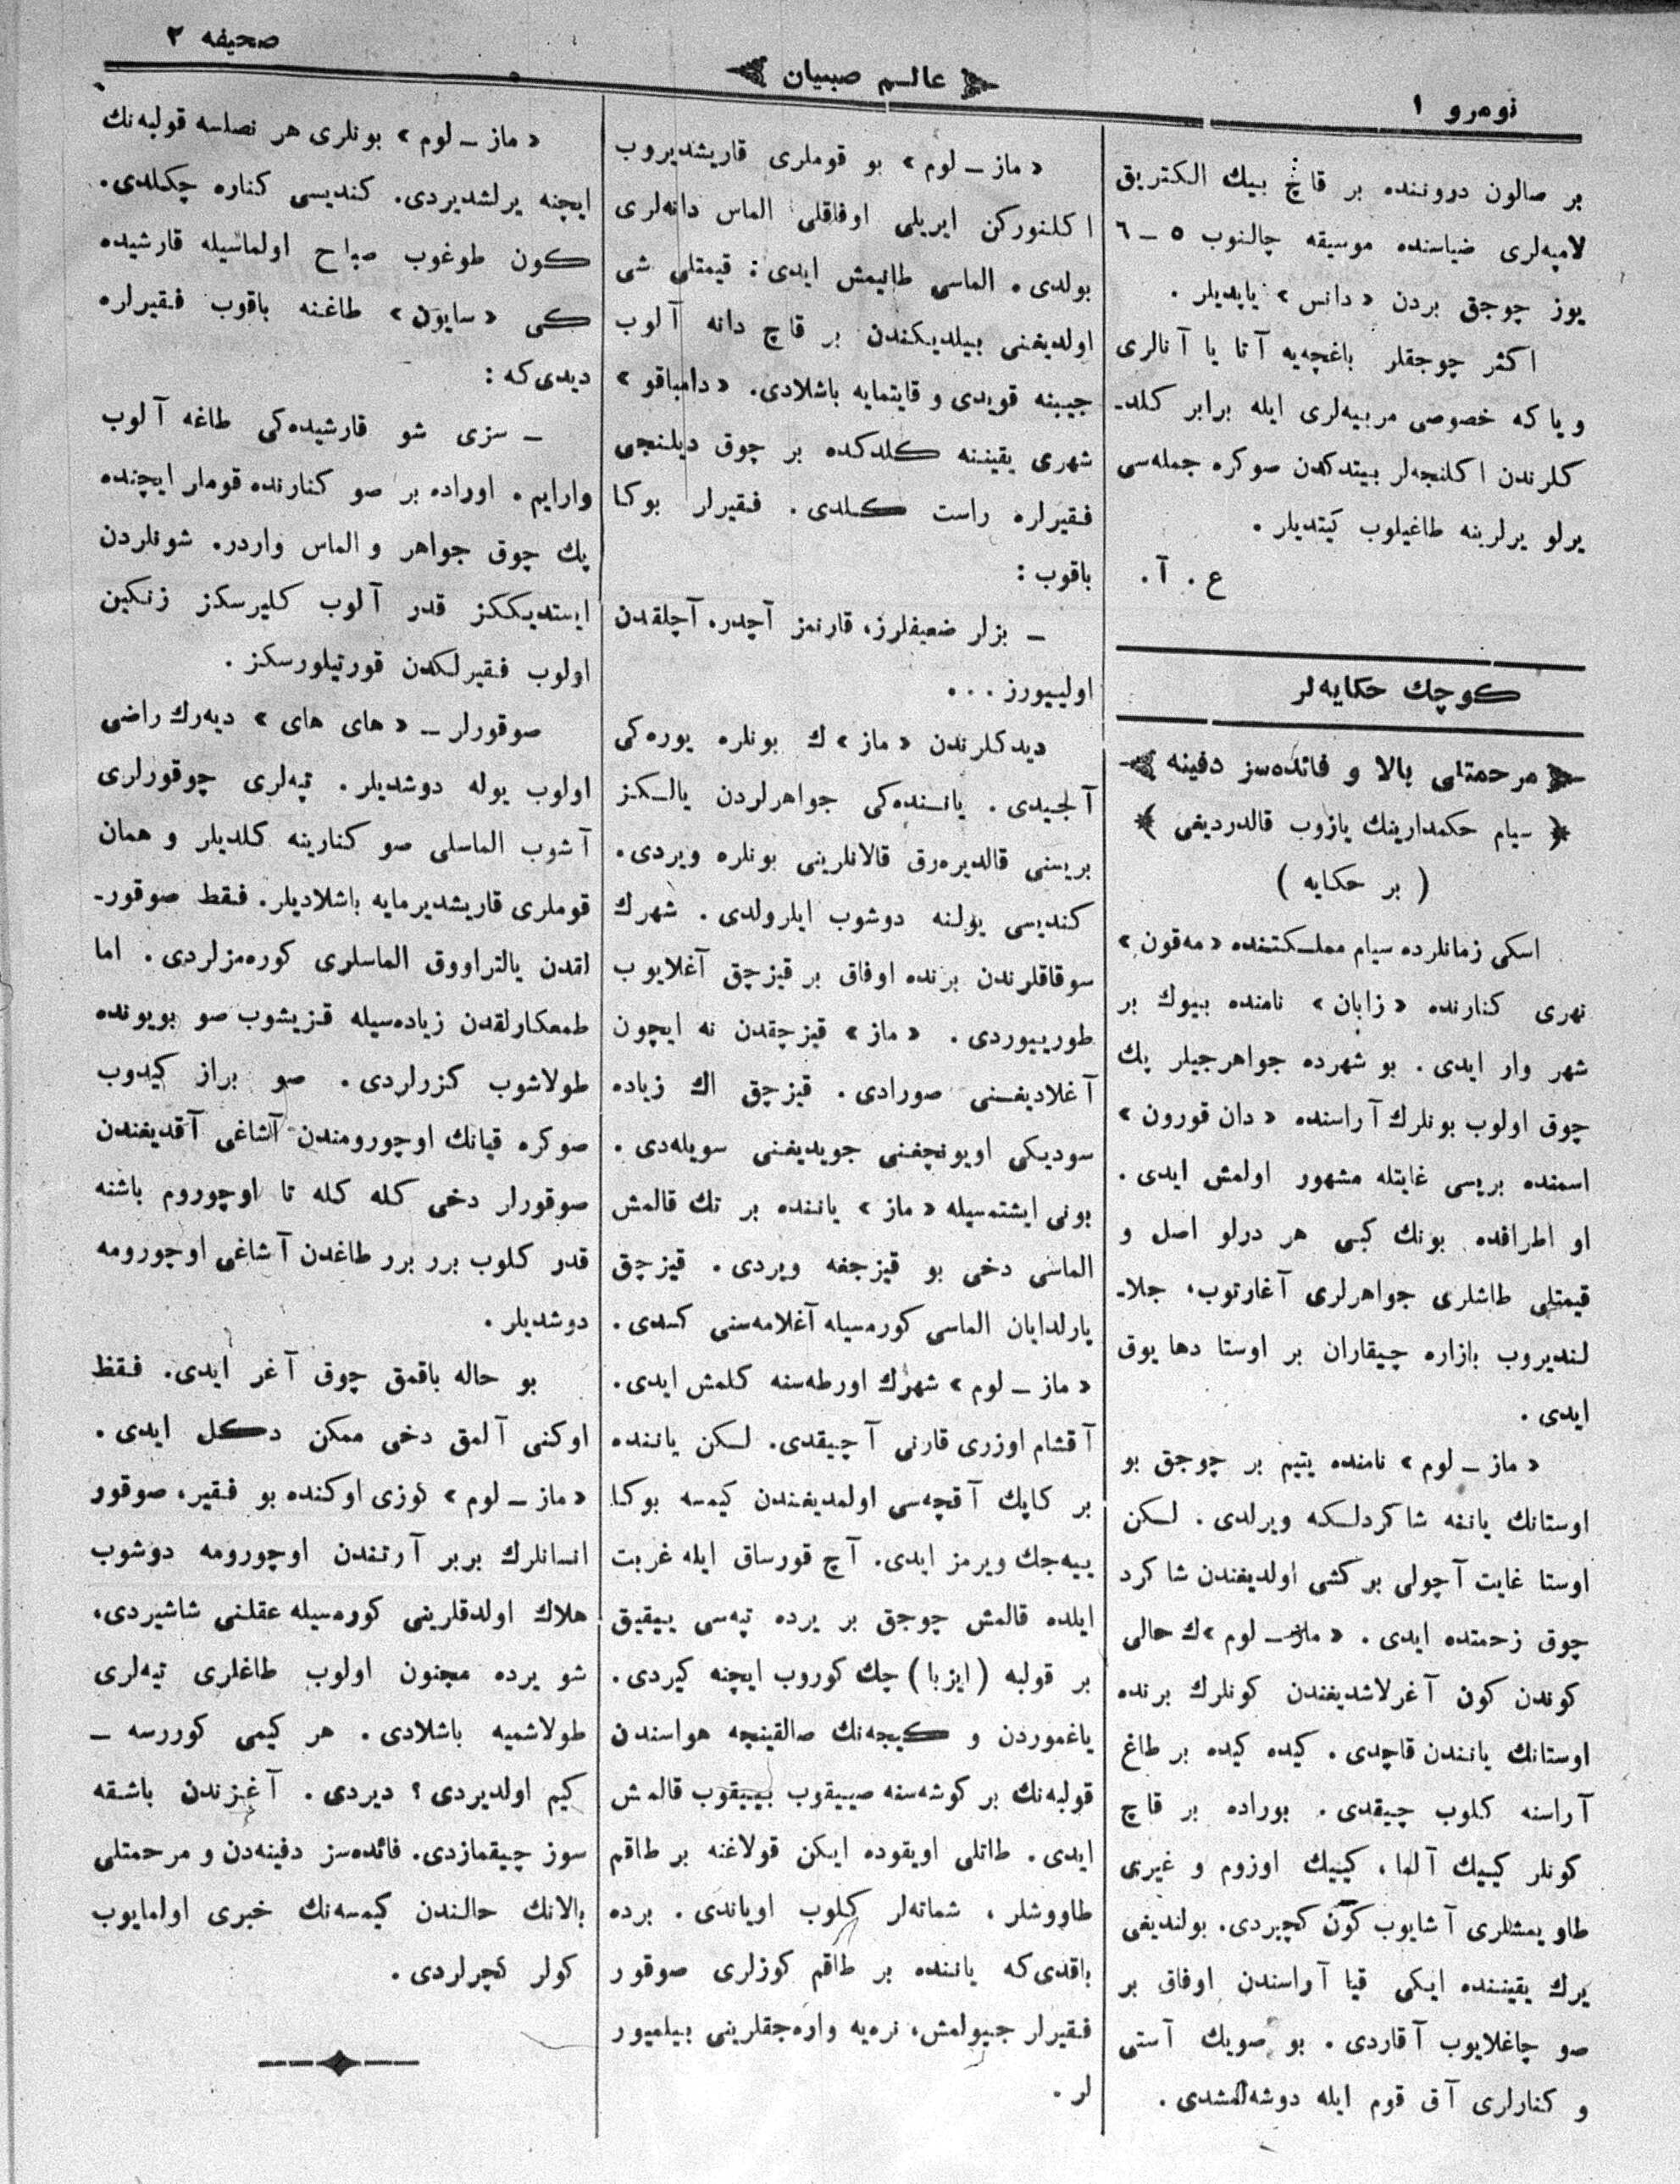 نومرو ١
عالم صبیان
صحیفه ٢
بر صالون دروننده بر قاچ بیك الکتریق
لامپه‌لری ضیاسنده موسیقه چالنوب ٥ – ٦
یوز چوجق بردن « دانس » یاپدیلر .
اکثر چوجقلر باغچه‌یه آتا یا آنالری
و یا که خصوصی مربیه‌لری ایله برابر کلد-
کلرندن اکلنجه‌لر بیتدکدن صوکره جمله‌سی
یرلو یرلرینه طاغیلوب کیتدیلر .
ع . آ .
کوچك حکایه‌لر
مرحمتلی بالا و فائده‌سز دفینه
﴿ سیام حکمدارینك یازوب قالدردیغی ﴾
( بر حکایه )
اسکی زمانلرده سیام مملکتنده « مه‌قون »
نهری کنارنده « زابان » نامنده بیوك بر
شهر وار ایدی . بو شهرده جواهرجیلر پك
چوق اولوب بونلرك آراسنده « دان قورون »
اسمنده بریسی غایتله مشهور اولمش ایدی .
او اطرافده بونك کبی هر درلو اصل و
قیمتلی طاشلری جواهرلری آغارتوب، جلا-
لندیروب بازاره چیقاران بر اوستا دها یوق
ایدی .
« ماز – لوم » نامنده یتیم بر چوجق بو
اوستانك یاننه شاکردلکه ویرلدی . لکن
اوستا غایت آچولی بر کشی اولدیغندن شاکرد
چوق زحمتده ایدی . « ماز – لوم » ك حالی
کوندن کون آغرلاشدیغندن کونلرك برنده
اوستانك یانندن قاچدی . کیده کیده بر طاغ
آراسنه کلوب چیقدی . بوراده بر قاچ
کونلر کییك آلما، کییك اوزوم و غیری
طاو یمشلری آشایوب کون کچیردی. بولندیغی
یرك یقیننده ایکی قیا آراسندن اوفاق بر
صو چاغلایوب آقاردی . بو صویك آستی
و کنارلری آق قوم ایله دوشه‌لمشدی .
« ماز – لوم » بو قوملری قاریشدیروب
اکلنورکن ایریلی اوفاقلی الماس دانه‌لری
بولدی . الماسی طانیمش ایدی : قیمتلی شی
اولدیغنی بیلدیکندن بر قاچ دانه آلوب
جیبنه قویدی و قایتمایه باشلادی. « دامباقو »
شهری یقیننه کلدکده بر چوق دیلنجی
فقیرلره راست کلدی . فقیرلر بوکا
باقوب :
– بزلر ضعیفلرز، قارنمز آچدر، آچلقدن
اولییورز ...
دیدکلرندن « ماز » ك بونلره یوره‌کی
آلجیدی . یاننده‌کی جواهرلردن یالکز
بریسنی قالدیره‌رق قالانلرینی بونلره ویردی.
کندیسی یولنه دوشوب ایلرولدی . شهرك
سوقاقلرندن برنده اوفاق بر قیزچق آغلایوب
طورییوردی . « ماز » قیزچقدن نه ایچون
آغلادیغنی صورادی . قیزچق اك زیاده
سودیکی اویونچغنی جویدیغنی سویله‌دی .
بونی ایشتمسیله « ماز » یاننده بر تك قالمش
الماسی دخی بو قیزجغه ویردی . قیزچق
یارلدایان الماسی کورمسیله آغلامه‌سنی کسدی.
« ماز – لوم » شهرك اورطه‌سنه کلمش ایدی.
آقشام اوزری قارنی آچیقدی. لکن یاننده
بر کاپك آقچه‌سی اولمدیغندن کیمسه بوکا
ییه‌جك ویرمز ایدی. آچ قورساق ایله غربت
ایلده قالمش چوجق بر یرده تپه‌سی ییقیق
بر قولبه ( ایزبا ) جك کوروب ایچنه کیردی.
یاغموردن و کیجه‌نك صالقینچه هواسندن
قولبه‌نك بر کوشه‌سنه صییقوب بییقوب قالمش
ایدی . طاتلی اویقوده ایکن قولاغنه بر طاقم
طاووشلر ، شماته‌لر کلوب اویاندی . برده
باقدی‌که یاننده بر طاقم کوزلری صوقور
فقیرلر جیولمش، نره‌یه واره‌جقلرینی بیلمیور
لر .
« ماز – لوم » بونلری هر نصلسه قولبه‌نك
ایچنه یرلشدیردی. کندیسی کناره چکلدی.
کون طوغوب صباح اولماسیله قارشیده
کی « سایون » طاغنه باقوب فقیرلره
دیدی‌که :
– سزی شو قارشیده‌کی طاغه آلوب
وارایم . اوراده بر صو کنارنده قوملر ایچنده
پك چوق جواهر و الماس واردر. شونلردن
ایستدیککز قدر آلوب کلیرسکز زنکین
اولوب فقیرلکدن قورتیلورسکز .
صوقورلر – « های های » دیه‌رك راضی
اولوب یوله دوشدیلر . تپه‌لری چوقورلری
آشوب الماسلی صو کنارینه کلدیلر و همان
قوملری قاریشدیرمایه باشلادیلر. فقط صوقور-
لقدن یالتراووق الماسلری کوره‌مزلردی . اما
طمعکارلقدن زیاده‌سیله قزیشوب صو بویونده
طولاشوب کزرلردی . صو براز کیدوب
صوکره قیانك اوچورومندن آشاغی آقدیغندن
صوقورلر دخی کله کله تا اوچوروم باشنه
قدر کلوب برر برر طاغدن آشاغی اوچورومه
دوشدیلر .
بو حاله باقمق چوق آغر ایدی. فقط
اوکنی آلمق دخی ممکن دکل ایدی .
« ماز – لوم » کوزی اوکنده بو فقیر، صوقور
انسانلرك بربر آرتندن اوچورومه دوشوب
هلاك اولدقلرینی کورمسیله عقلنی شاشیردی،
شو یرده مجنون اولوب طاغلری تپه‌لری
طولاشمیه باشلادی . هر کیمی کوررسه –
کیم اولدیردی ؟ دیردی . آغزندن باشقه
سوز چیقمازدی. فائده‌سز دفینه‌دن و مرحمتلی
بالانك حالندن کیمسه‌نك خبری اولمایوب
کولر کچرلردی .